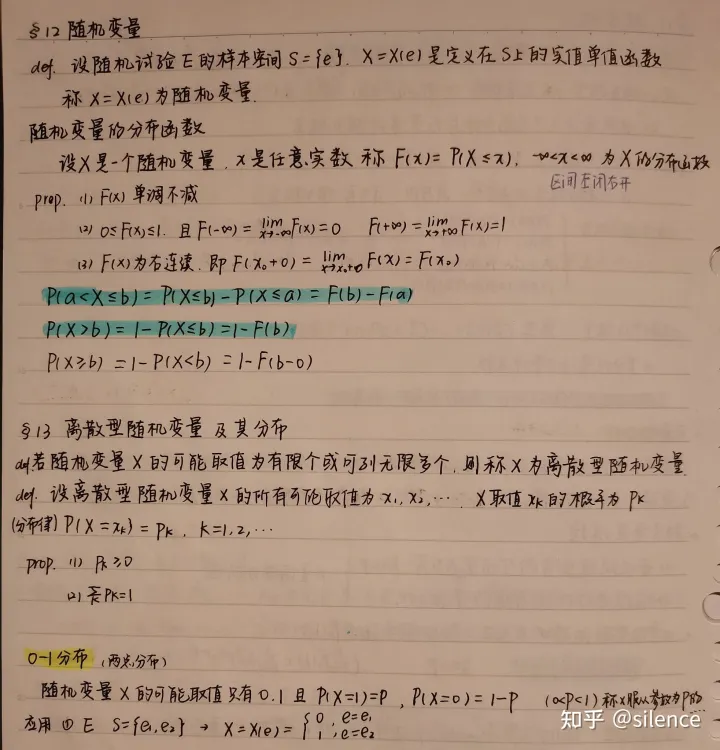 §12 随机变量
def. 设随机试验 E 的样本空间 S={e}. X=X(e) 是定义在S上的实值单值函数
称 X=X(e) 为随机变量.
随机变量的分布函数
设X是一个随机变量, x是任意实数 称 F(x)=P(X≤x), -∞<x<∞ 为X的分布函数
区间左闭右开
prop. (1) F(x) 单调不减
(2) 0≤F(x)≤1. 且 F(-∞)=lim x→-∞ F(x)=0 F(+∞)=lim x→+∞ F(x)=1
(3) F(x)为右连续. 即 F(x₀+0)=lim x→x₀+0 F(x)=F(x₀)
P(a<X≤b)=P(X≤b)-P(X≤a)=F(b)-F(a)
P(X>b)=1-P(X≤b)=1-F(b)
P(X≥b)=1-P(X<b)=1-F(b-0)
§13 离散型随机变量及其分布
def若随机变量X的可能取值为有限个或可列无限多个, 则称X为离散型随机变量
def. 设离散型随机变量X的所有可能取值为 x₁, x₂, …. X取值 xₖ 的概率为 Pₖ
(分布律) P{X=xₖ}=Pₖ, k=1,2,…
prop. (1) Pₖ≥0
(2) Σₖ Pₖ=1
0-1分布 (两点分布)
随机变量X的可能取值只有0.1 且 P(X=1)=P, P(X=0)=1-P (0<P<1) 称X服从参数为P的
应用 ① E S={e₁,e₂} → X=X(e)={0, e=e₁
1, e=e₂
知乎 @silence